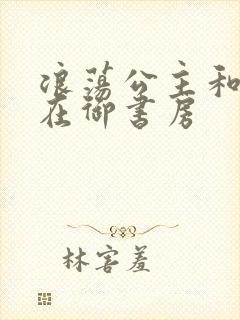 浪荡公主和
在御书房
林害羞